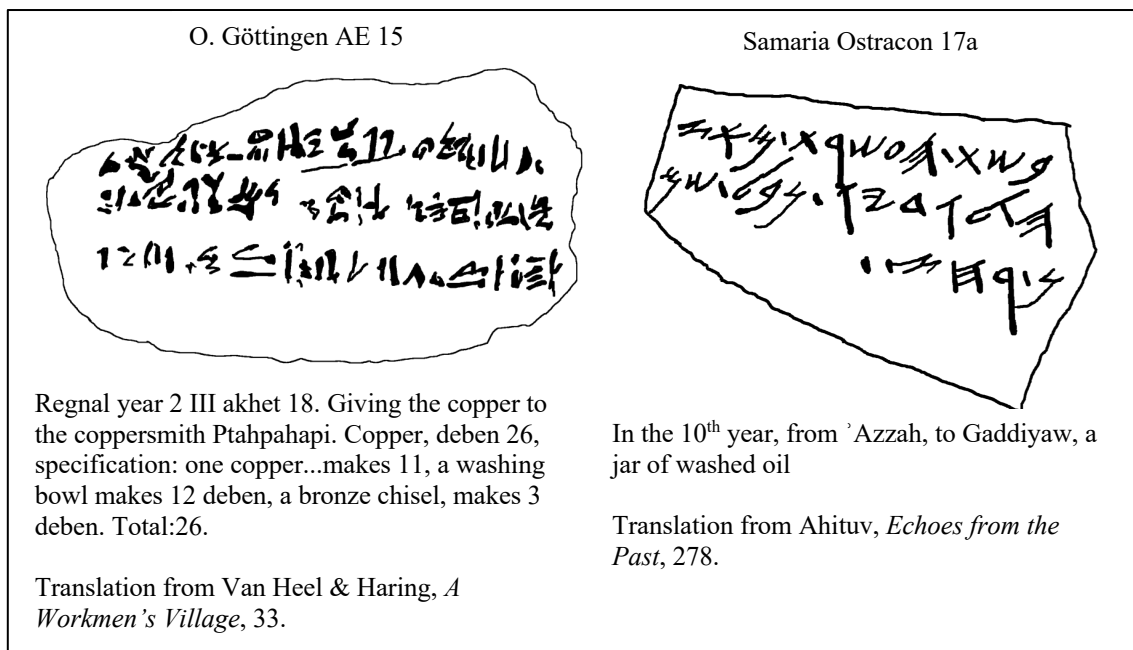 O. Göttingen AE 15
Regnal year 2 III akhet 18. Giving the copper to
the coppersmith Ptahpahapi. Copper, deben 26,
specification: one copper...makes 11, a washing
bowl makes 12 deben, a bronze chisel, makes 3
deben. Total:26.
Translation from Van Heel & Haring, A
Workmen’s Village, 33.
Samaria Ostracon 17a
𐤁𐤔𐤕.𐤄𐤏𐤔𐤓𐤕.𐤌𐤀𐤆
𐤄.𐤋𐤂𐤃𐤉𐤅.𐤍𐤁𐤋.𐤔𐤌
𐤍.𐤓𐤇𐤑.
In the 10th year, from ʾAzzah, to Gaddiyaw, a
jar of washed oil
Translation from Ahituv, Echoes from the
Past, 278.